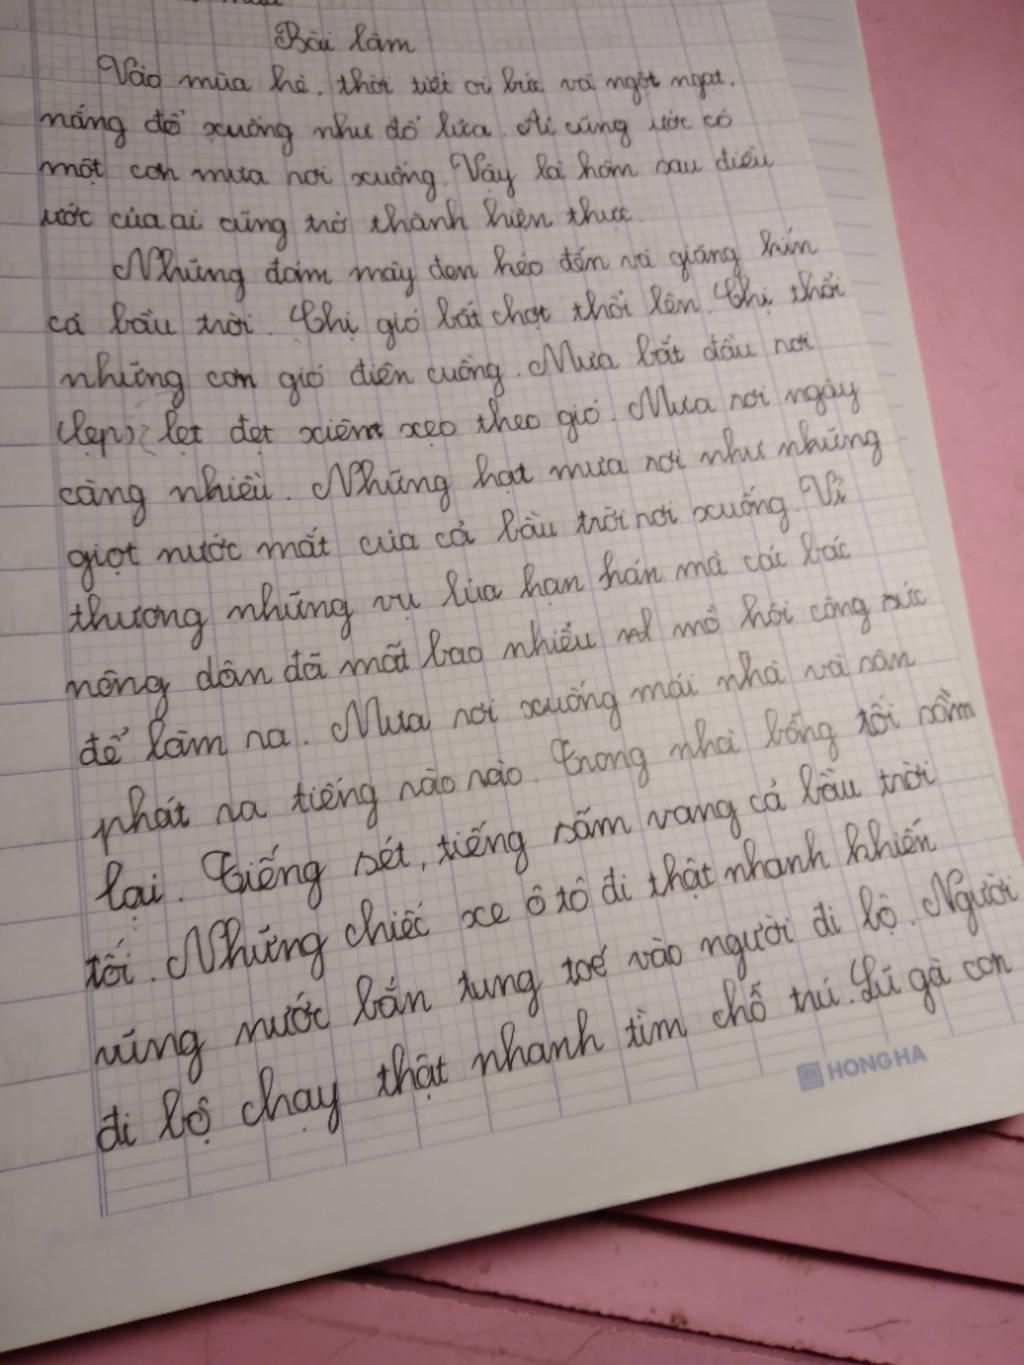 Bài làm
Vào mùa hè, thời tiết oi bức và ngột ngạt,
nắng đổ xuống như đổ lửa. Ai cũng ước có
một cơn mưa rơi xuống. Vậy là hôm sau điều
ước của ai cũng trở thành hiện thực.
Những đám mây đen kéo đến và giăng kín
cả bầu trời. Chị gió bất chợt thổi lên. Chị thổi
những cơn gió điên cuồng. Mưa bắt đầu rơi
lẹt đẹt xiên xẹo theo gió. Mưa rơi ngày
càng nhiều. Những hạt mưa rơi như những
giọt nước mắt của cả bầu trời rơi xuống. Vì
thương những vụ lúa hạn hán mà các bác
nông dân đã mất bao nhiều mồ hôi công sức
để làm ra. Mưa rơi xuống mái nhà và sân
phát ra tiếng rào rào. Trong nhà bỗng tối sầm
lại. Tiếng sét, tiếng sấm vang cả bầu trời
tối. Những chiếc xe ô tô đi thật nhanh khiến
vũng nước bắn tung toé vào người đi bộ. Người
đi bộ chạy thật nhanh tìm chỗ trú. Lũ gà con
HONG HA